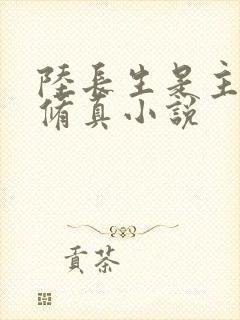 陸長生是主
脩真小說
貢茶